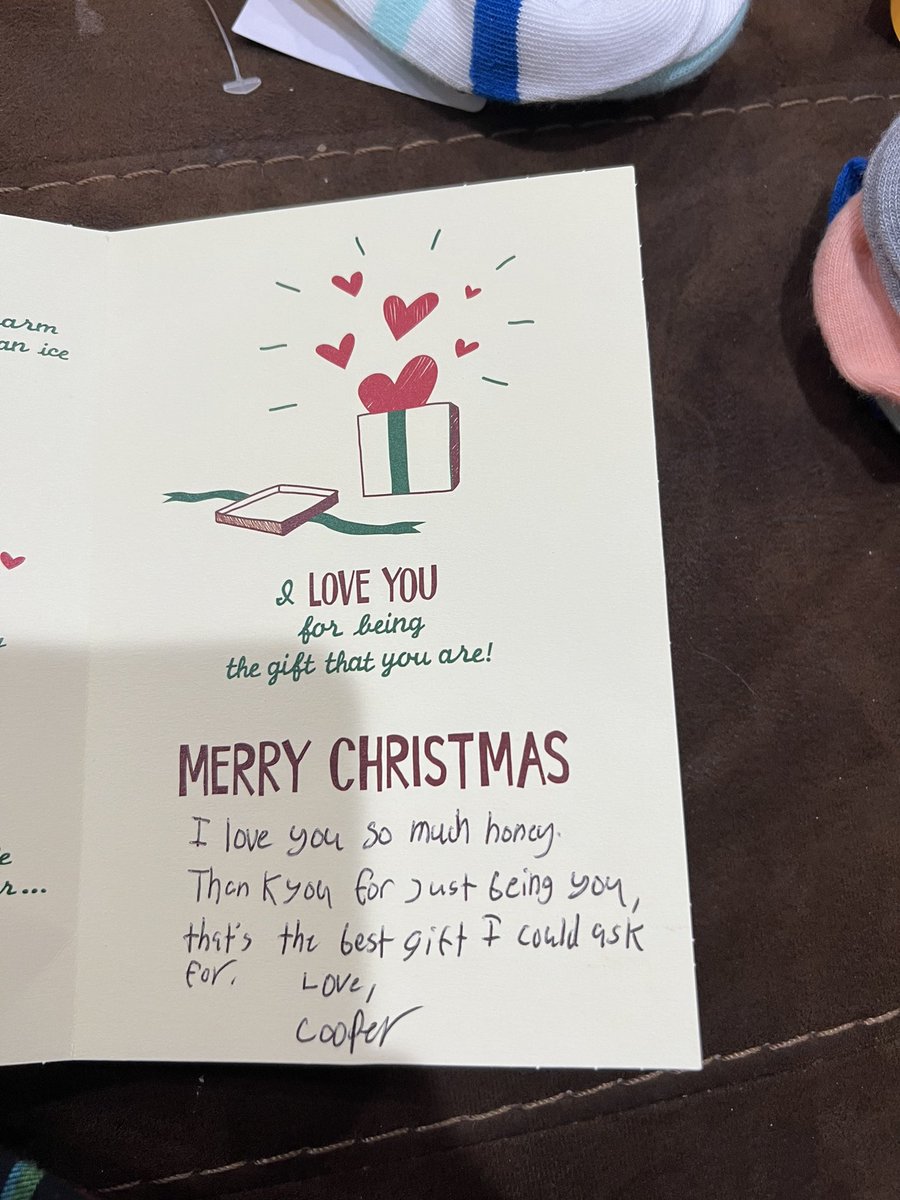 arm
an ice
e
r...
I LOVE YOU
for being
the gift that you are!
MERRY CHRISTMAS
I love you so much honey.
Thank you for Just being you,
that's the best gift I could ask
for.
Love,
Cooper